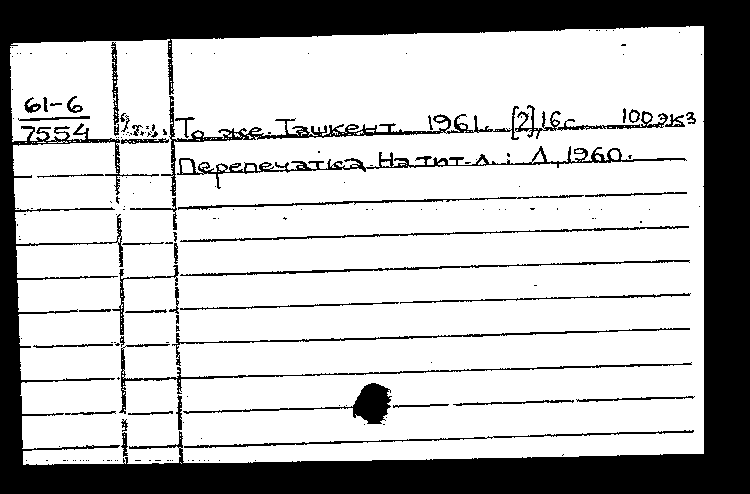 61-6
7554 То же. Ташкент. 1961. [2],16с 100 экз
Перепечатка. На тит. л. : Л, 1960.